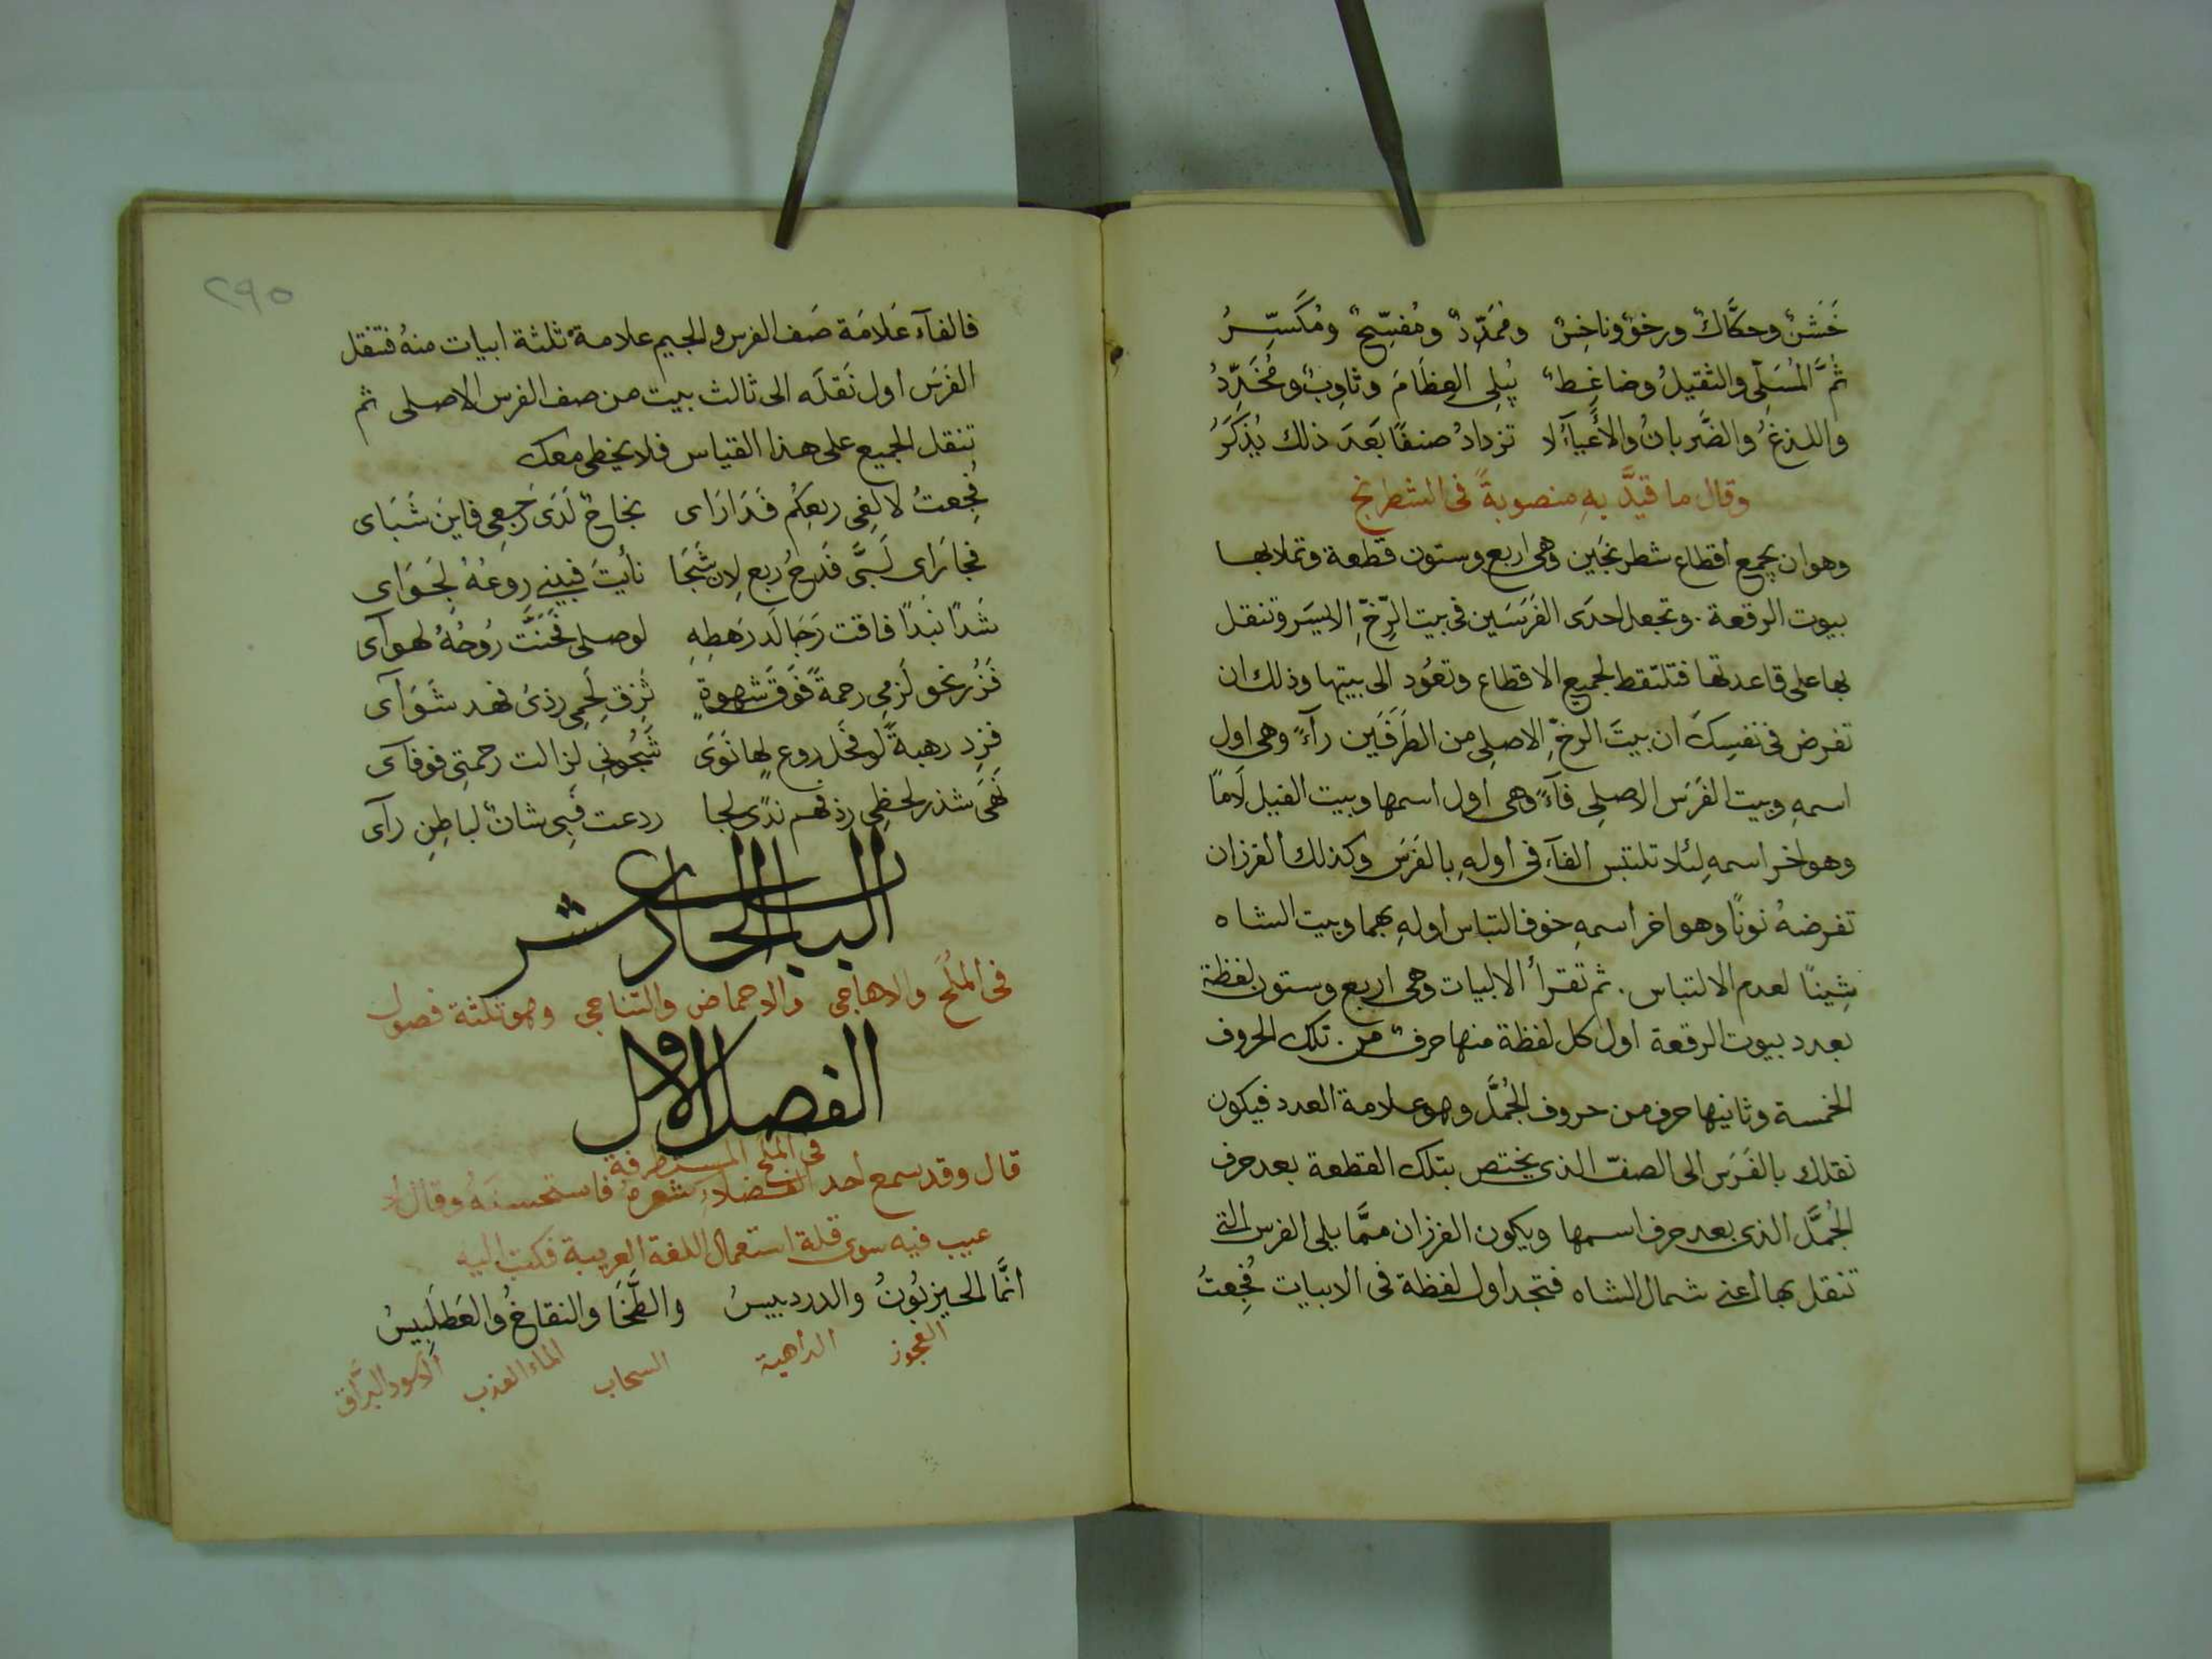 خَشَنٌ وحكَّاكٌ ورخوٌ وناخِسٌ وممَدِّدٌ ومُفسِّحٌ ومُكَسِّرُ
ثُمَّ المُسَلِّى والثقيلُ وضاغِطٌ يُبلِى العِظَامَ وثاوِبٌ ومُخَدِّرُ
واللذعُ والضَّربانُ والأعياءُ لا تزدادُ صنفًا بَعَدَ ذلك يُذكَرُ
وقال ما قيَّد بهِ منصوبةً فى الشطرنج
وهو ان يجمع أقطاع شطرنجَين وهى اربع وستون قطعة وتملا بها
بيوت الرقعة. وتجعل احدَى الفَرَسَين فى بيت الرِّخِّ الايسَر وتنقل
بها على قاعدتها فتلتقط لجميع الاقطاع وتعُود الى بيتها وذلك ان
تفرض فى نفسِكَ ان بيتَ الرخِّ الاصلى من الطَرَفَين رآءً وهى اول
اسمهِ وبيت الفَرَس الاصلِى فآءً وهى اول اسمها وبيت الفيل لَامًا
وهو اخر اسمهِ لئلا تلتبس الفآء فى أولهِ بالفَرَس وكذلك الفرزان
تفرضهُ نونًا وهو اخر أسمهِ خوف التباس أولهِ بهما وبيت الشاه
شِينًا لعدم الالتباس. ثم تقرأ الابيات وهى اربع وستون لفظة
بعدد بيوت الرقعة اول كل لفظة منها حرف من تلك الحروف
الخمسة وثانيها حرف من حروف الجُمَّل وهو علامة العدد فيكون
نقلك بالفَرَس الى الصفّ الذى يختص بتلك القطعة بعد حرف
الجُمَّل الذى بعد حرف اسمها ويكون الفرزان ممَّا يلى الفرس التى
تنقل بها أعنى شمال الشاه فتجد اول لفظة فى الابيات فُجِعتُ
٢٩٥
فالفآء عَلامَة صَف الفرس والجيم علامة ثلثة ابيات منهُ فتنقل
الفَرَس أول نَقلَه الى ثالث بيت من صف الفرس الاصلى ثم
تنقل الجميع على هذا القياس فلا يخطى معك
فُجِعتُ لالِفى ربعِكُم فَدَارَاى نجاحٌ لَدَى رَجعِى فاينَ شَبَاى
فجا رَاى لَبَّى فَدَحُ ربع لِان شَجَا نأيتَ فبينى روعُهُ لِجَوَاى
شَدًا نبَدًا فاقت رَجَا لَدَ رَهطِهِ لوصلى فَحَنَّت رُوحُهُ لهوآى
فَزُر نحو لَزمِى رحمةً فَوقَ شهوةٍ نَزِق لَحمِى رذىُ فهد شَوَآى
فَزِد رهبةً لو فَحَل روع لها نَوَى شَجُونِى لزالت رحمتِى فوفآى
نَهَى شذر لحظِى رذفهم ندًى لجا ردعت فَبِى شانٌ لباطِنِ رآى
الباب الحادى عشر
فى المُلَح والاهاجى والاحماض والتناجى وهو ثلثة فصول
الفصل الاول
فى المُلَح المستظرفة
قال وقد سمع أحد الفضلاءِ شعره فاستحسنهُ وقال لا
عيب فيه سوى قلة استعمال اللغة الغريبة فكتب اليه
انَّما الحيزبُونُ والدردبيسُ والطَّخَا والنقاخُ والعَطلَبِيسُ
العجوز الداهية السحاب الماء العذب الاسود البرَّاق